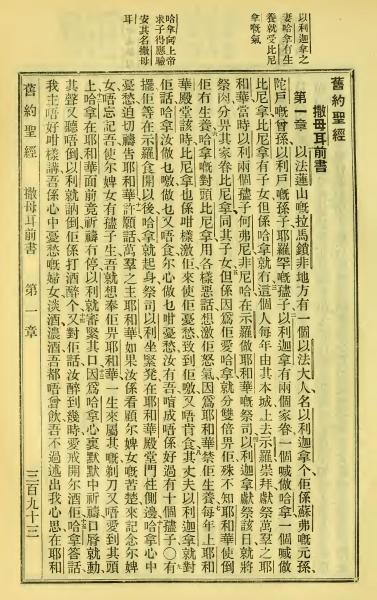 以利迦拿之
妻哈拿有生
養就受比尼
拿嘅氣
哈拿向上帝
求子得應驗
安其名撒母
耳
舊約聖經
撒母耳前書
第一章　以法蓮山嘅拉馬鎖非地方有一個以法大人名以利迦拿个佢係蘇弗嘅元孫
陀戶嘅曾孫以利戶嘅孫子耶羅罕嘅儘子以利迦拿有兩個家眷一個喊做哈拿一個喊做
比尼拿比尼拿有子女但係哈拿就冇這個人每年由其本城上去示羅崇拜獻祭萬羣之耶
和華當時以利兩個儘子何弗尼非尼哈在示羅做耶和華嘅祭司以利迦拿獻祭該日就將
祭肉分畀其家眷比尼拿同其子女但係因爲佢愛哈拿就分雙倍畀佢殊不知耶和華使倒
佢冇生養哈拿嘅對頭比尼拿用各樣惡話想激佢怒氣因爲耶和華禁佢生養每年上耶和
華殿堂該時比尼拿也係咁樣激佢來使佢憂愁致到佢噭又唔肯食其丈夫以利迦拿就對
佢話哈拿汝做也噭做也又唔食尔心做也咁憂愁汝有吾豈成唔係好過有十個儘子〇有
擺佢等在示羅食開以後哈拿就起身祭司以利坐緊㽵在耶和華殿堂門柱側邊哈拿心中
憂愁迫切禱告耶和華許願話萬羣之主耶和華如果汝係看顧尔婢女嘅苦楚來記念尔婢
女唔忘記吾使尔婢女有儘子生吾就想奉佢畀耶和華一生來屬其嘅剃刀又唔愛到其頭
上哈拿在耶和華面前竟祈禱冇停以利就審緊其口因爲哈拿心裏默默中祈禱口唇就動
其聲又聽唔倒以利就訥倒佢係打酒醉个又對佢話汝醉到幾時愛戒開尔酒佢哈拿答話
我主唔好咁樣講吾係心中憂愁嘅婦女淡酒濃酒吾都唔曾飲吾不過透出我心思在耶和
舊約聖經　撒母耳前書　第一章　三百九十三